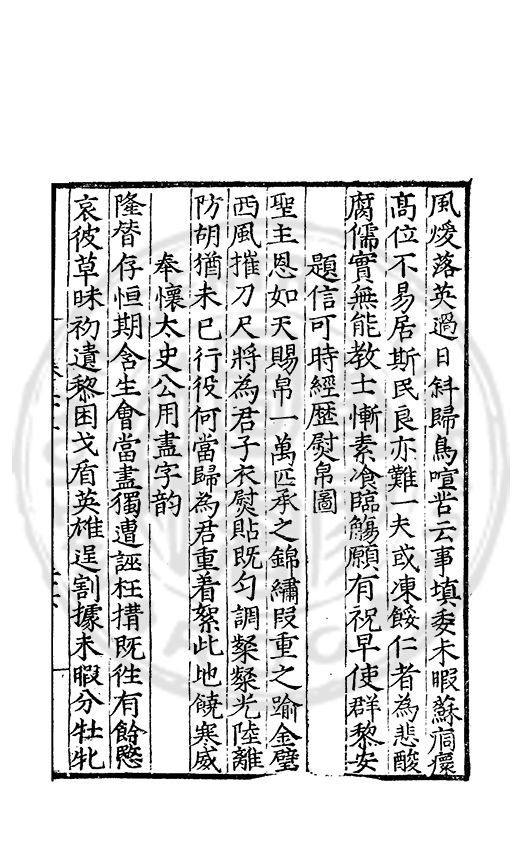 風煖落英過日斜歸鳥喧苦云事填委未暇蘇痌瘝
髙位不易居斯民良亦難一夫或凍餒仁者為悲酸
腐儒實無能教士慚素飡臨觴願有祝早使群黎安
題信可時經歴熨帛圖
聖主恩如天賜帛一萬匹承之錦繡叚重之踰金璧
西風摧刀尺將為君子衣熨貼既匀調粲粲光陸離
防胡猶未已行役何當歸為君重着絮此地饒寒威
奉懷太史公用盡字韵
隆替存恒期含生會當盡獨遭誣枉搆既徃有餘愍
哀彼草昧初遺黎困戈盾英雄逞割據未暇分牡牝